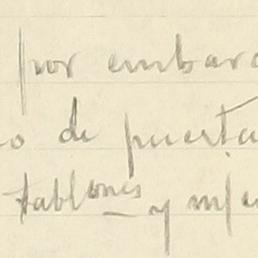 por embarc
o de puerta
tablones y mj